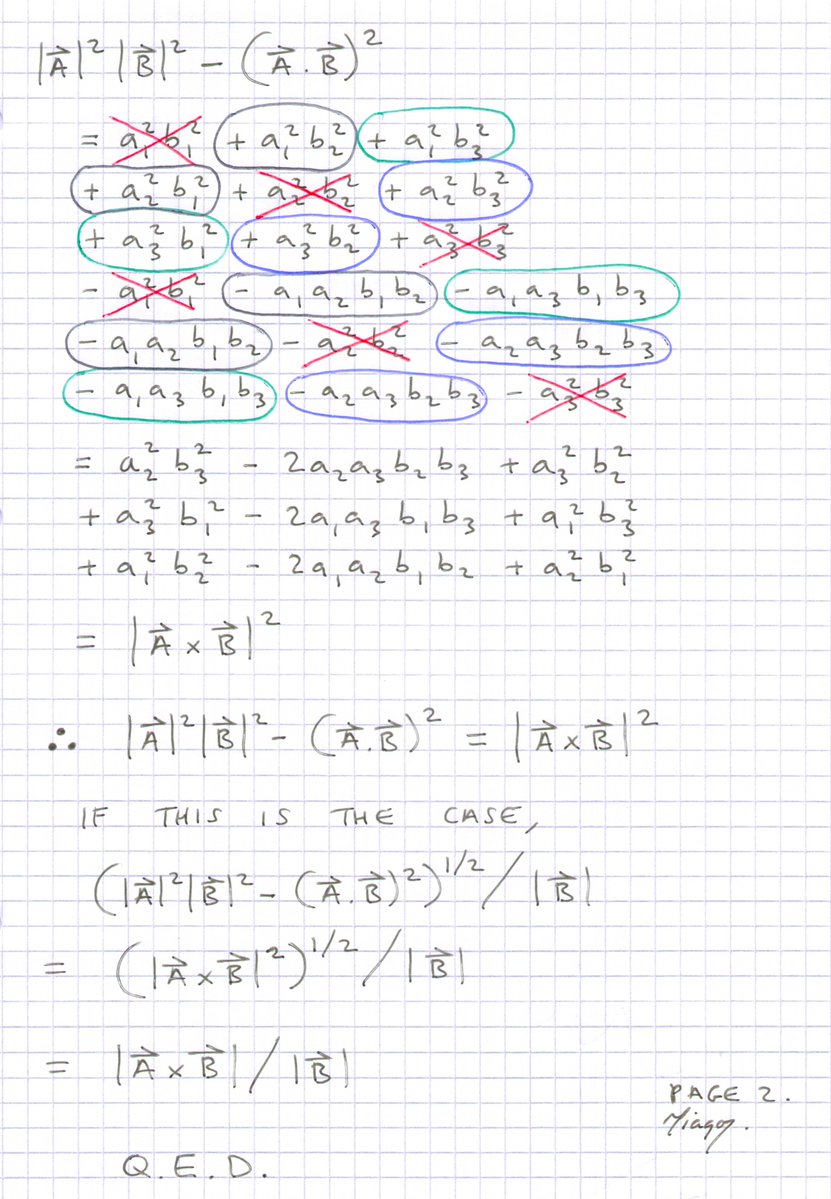 |A⃗|² |B⃗|² − (A⃗ . B⃗)²
= a₁² b₁² + a₁² b₂² + a₁² b₃²
+ a₂² b₁² + a₂² b₂² + a₂² b₃²
+ a₃² b₁² + a₃² b₂² + a₃² b₃²
− a₁² b₁² − a₁ a₂ b₁ b₂ − a₁ a₃ b₁ b₃
− a₁ a₂ b₁ b₂ − a₂² b₂² − a₂ a₃ b₂ b₃
− a₁ a₃ b₁ b₃ − a₂ a₃ b₂ b₃ − a₃² b₃²
= a₂² b₃² − 2a₂a₃ b₂ b₃ + a₃² b₂²
+ a₃² b₁² − 2a₁a₃ b₁ b₃ + a₁² b₃²
+ a₁² b₂² − 2a₁a₂ b₁ b₂ + a₂² b₁²
= |A⃗ × B⃗|²
∴ |A⃗|²|B⃗|² − (A⃗.B⃗)² = |A⃗ × B⃗|²
IF THIS IS THE CASE,
(|A⃗|²|B⃗|² − (A⃗.B⃗)²)^1/2 / |B⃗|
= (|A⃗ × B⃗|²)^1/2 / |B⃗|
= |A⃗ × B⃗| / |B⃗|
PAGE 2.
Q.E.D.